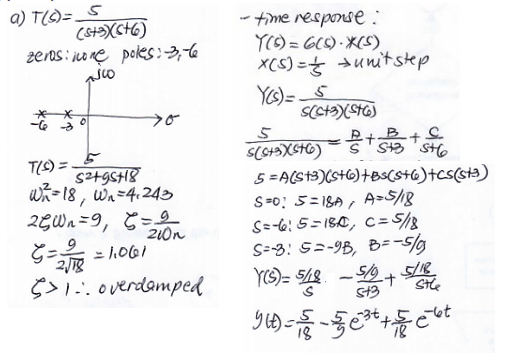 a) T(s) = 5 / (s+3)(s+6)
zeros: none poles: -3, -6
jω
-6 -3 0 σ
T(s) = 5 / s²+9s+18
ωn² = 18, ωn = 4.243
2ζωn = 9, ζ = 9 / 2ωn
ζ = 9 / 2√18 = 1.061
ζ > 1 ∴ overdamped
- time response:
Y(s) = G(s) · X(s)
X(s) = 1/s → unit step
Y(s) = 5 / s(s+3)(s+6)
5 / s(s+3)(s+6) = A/s + B/s+3 + C/s+6
5 = A(s+3)(s+6) + Bs(s+6) + Cs(s+3)
s=0: 5 = 18A, A = 5/18
s=-6: 5 = 18C, C = 5/18
s=-3: 5 = -9B, B = -5/9
Y(s) = 5/18 / s - 5/9 / s+3 + 5/18 / s+6
y(t) = 5/18 - 5/9 e^-3t + 5/18 e^-6t